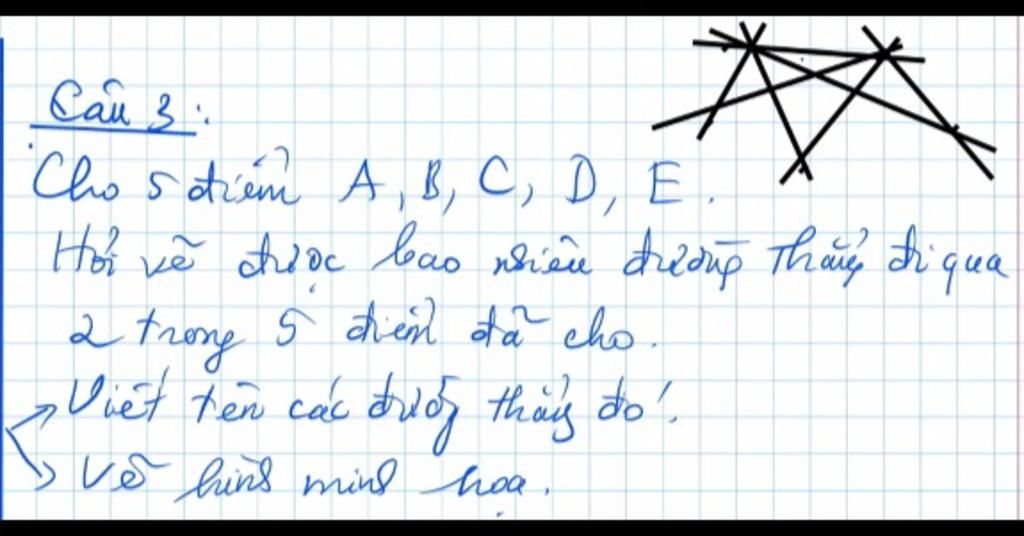 Câu 3:
Cho 5 điểm A, B, C, D, E.
Hỏi vẽ được bao nhiêu đường thẳng đi qua
2 trong 5 điểm đã cho.
Viết tên các đường thẳng đó.
Vẽ hình minh họa.